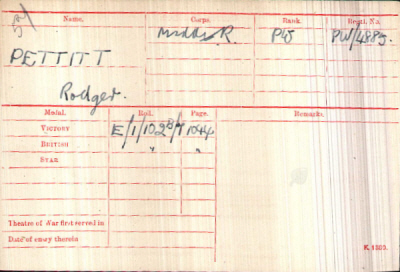 Name. Corps. Rank. Regtl. No.
PETTITT Middx R. PW PW/4885.
Rodger.
Medal. Roll. Page. Remarks.
VICTORY E/1/102B 1044
BRITISH " "
STAR
Theatre of War first served in
Date of entry therein
K. 1380.